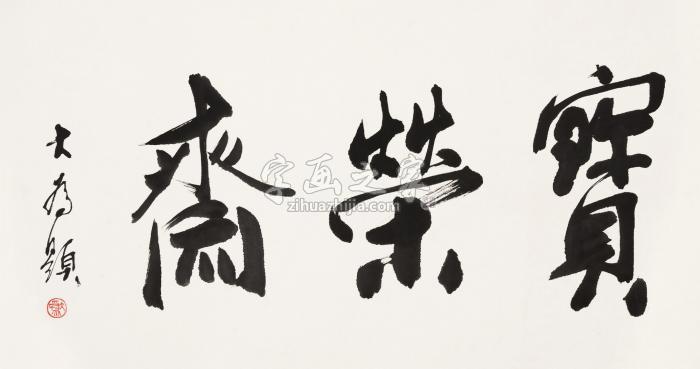 寶榮齋
大为題
字画之家
zihuazhijia.com